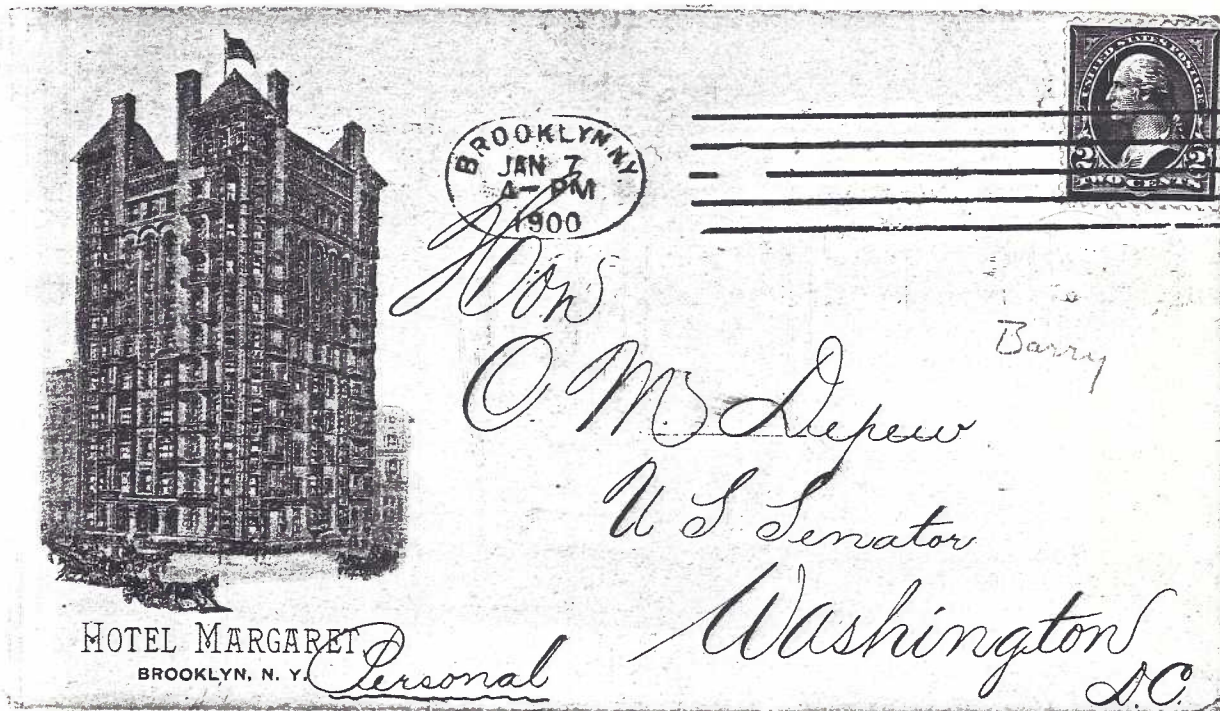 BROOKLYN, N.Y.
JAN 7
4-PM
1900
UNITED STATES POSTAGE
2 2
TWO CENTS
Hon
C M. Depew
U S Senator
Washington
D.C.
Barry
HOTEL MARGARET
BROOKLYN, N. Y.
Personal